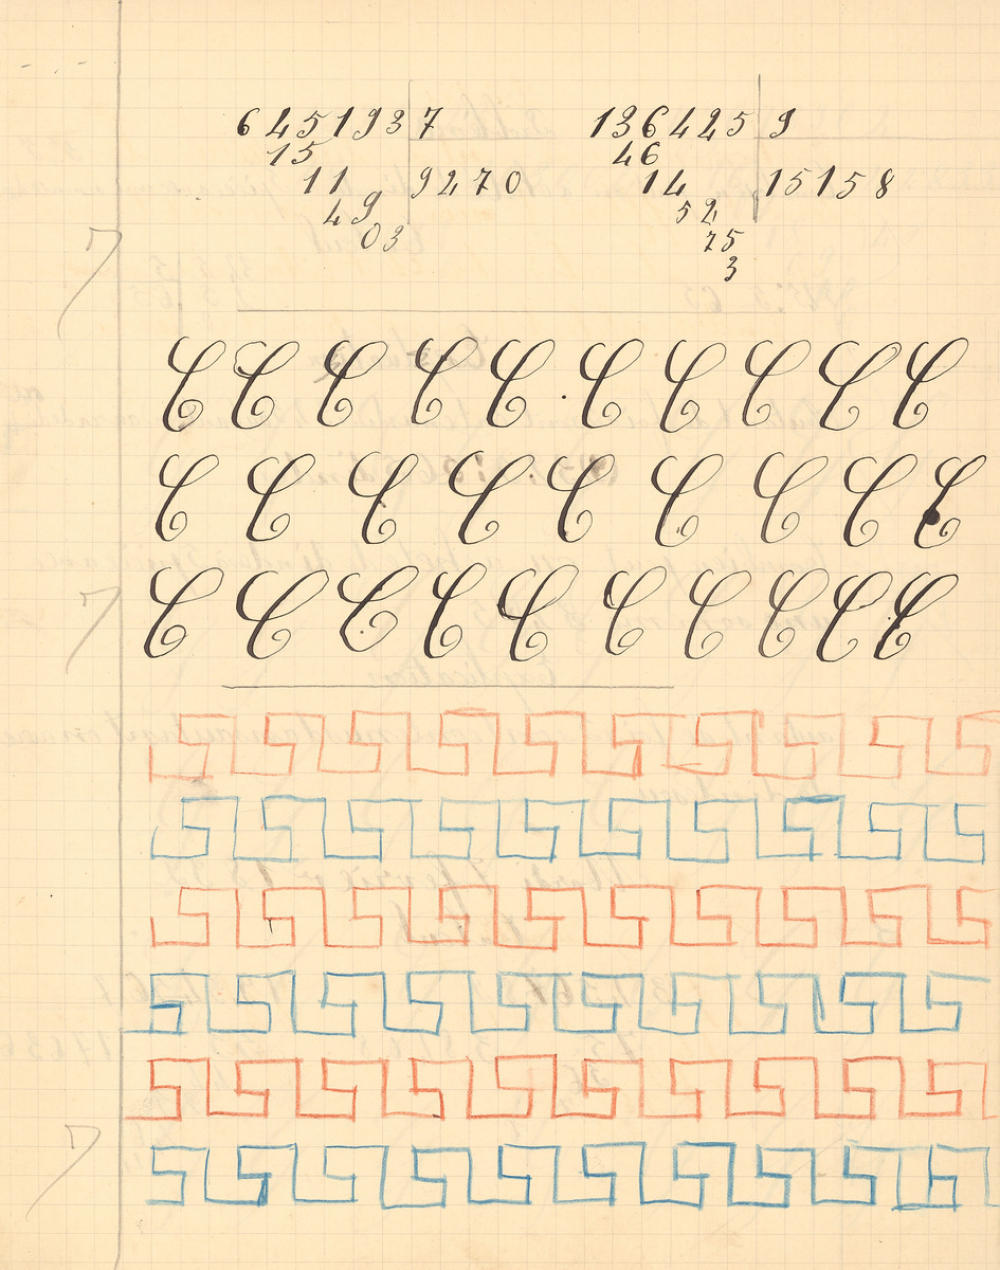 645193 7 136425 9
15 46
11 9270 14 15158
49 52
03 75
3
C C C C C C C C C C
C C C C C C C C C
C C C C C C C C C C